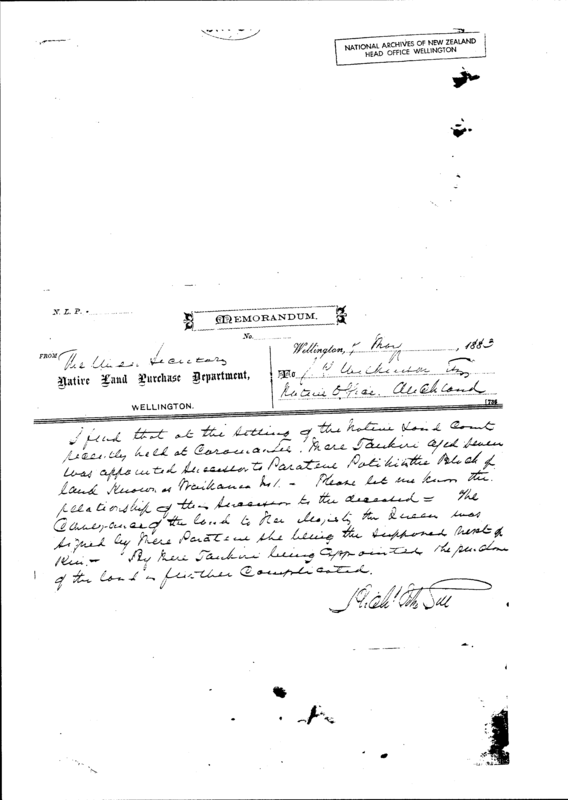 NATIONAL ARCHIVES OF NEW ZEALAND
HEAD OFFICE WELLINGTON
N. L. P.
MEMORANDUM.
No.
FROM The Under Secretary
Native Land Purchase Department,
WELLINGTON.
Wellington, May, 1883
To J W Wilkinson Esq
Native Office. Auckland
I find that at the sitting of the Native Land Court
recently held at Coromandel, Mere Taukiri aged seven
was appointed Successor to Paratene in the Block of
land known as No 1. - Please let me know the
relationship of this Successor to the deceased = The
Conveyance of the land to Her Majesty the Queen was
signed by Mere Paratene she being the supposed next of
Kin. - By Mere Taukiri being appointed the purchase
of the land is further Complicated.
Gill